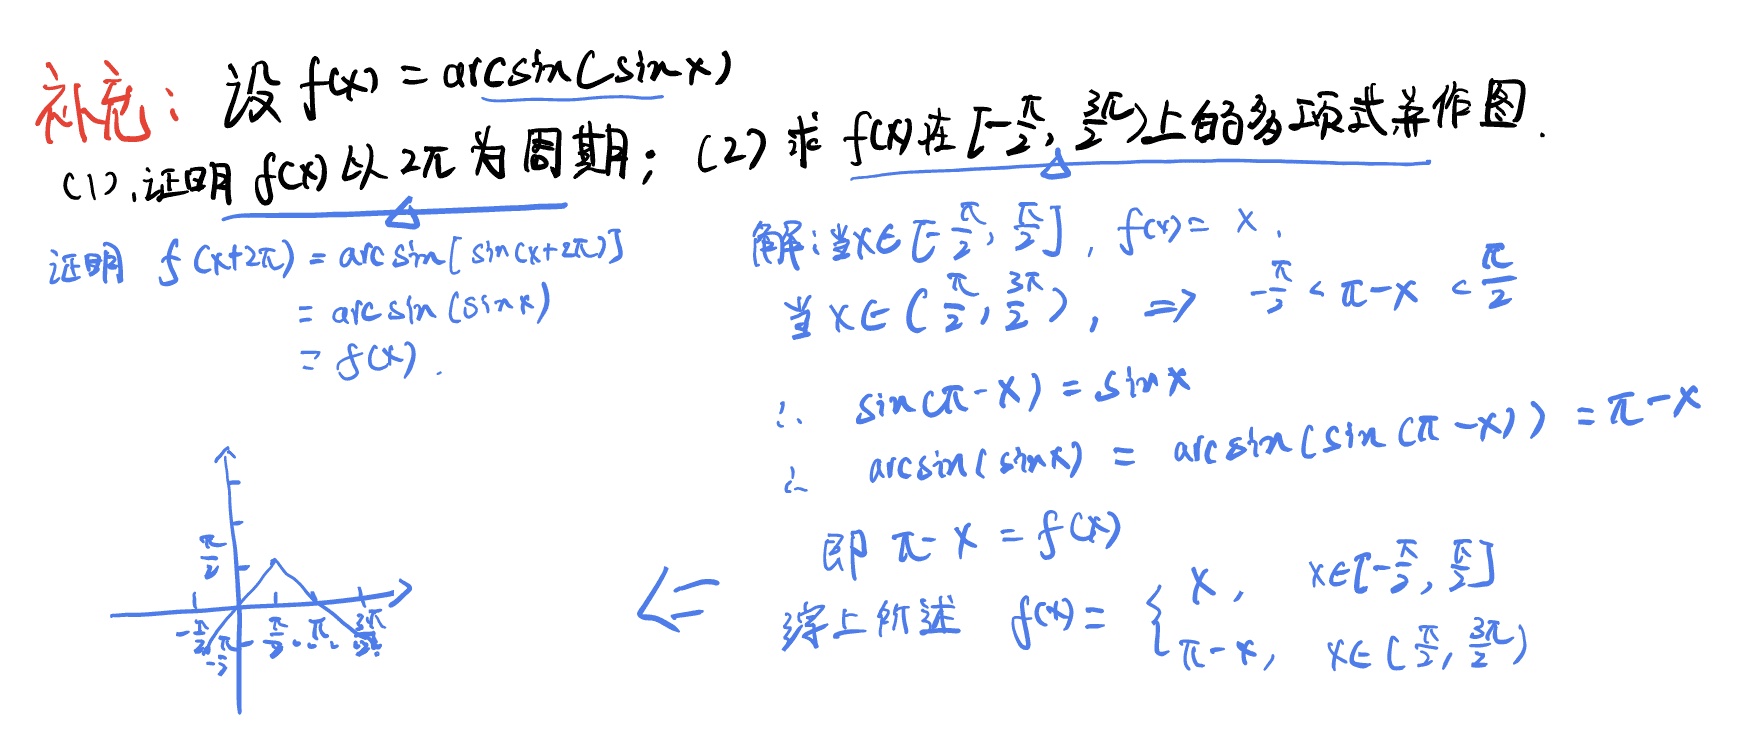 补充：设 f(x) = arcsin(sinx)
(1).证明 f(x) 以 2π 为周期；(2) 求 f(x)在[-π/2, 3π/2)上的多项式并作图.
证明 f(x+2π) = arcsin[sin(x+2π)]
= arcsin(sinx)
= f(x).
解：当x∈[-π/2, π/2], f(x) = x.
当x∈(π/2, 3π/2), => -π/2 < π-x < π/2
∴ sin(π-x) = sinx
∴ arcsin(sinx) = arcsin(sin(π-x)) = π-x
即 π-x = f(x)
综上所述 f(x) = { x, x∈[-π/2, π/2]
π-x, x∈(π/2, 3π/2)
<=
π/2
-π/2 π/2 π 3π/2
-π/2